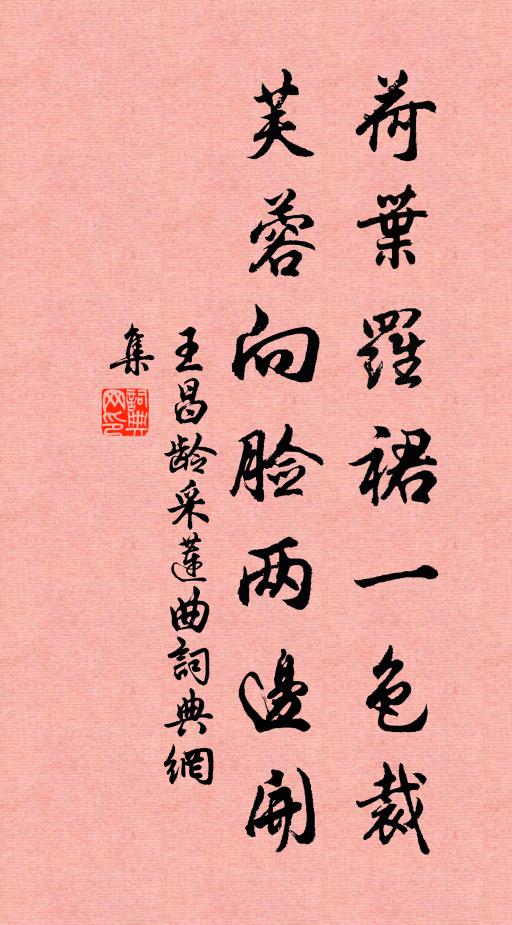 荷葉羅裙一色裁
芙蓉向脸两邊開
王昌龄采蓮曲詞典網
集
詞典网印